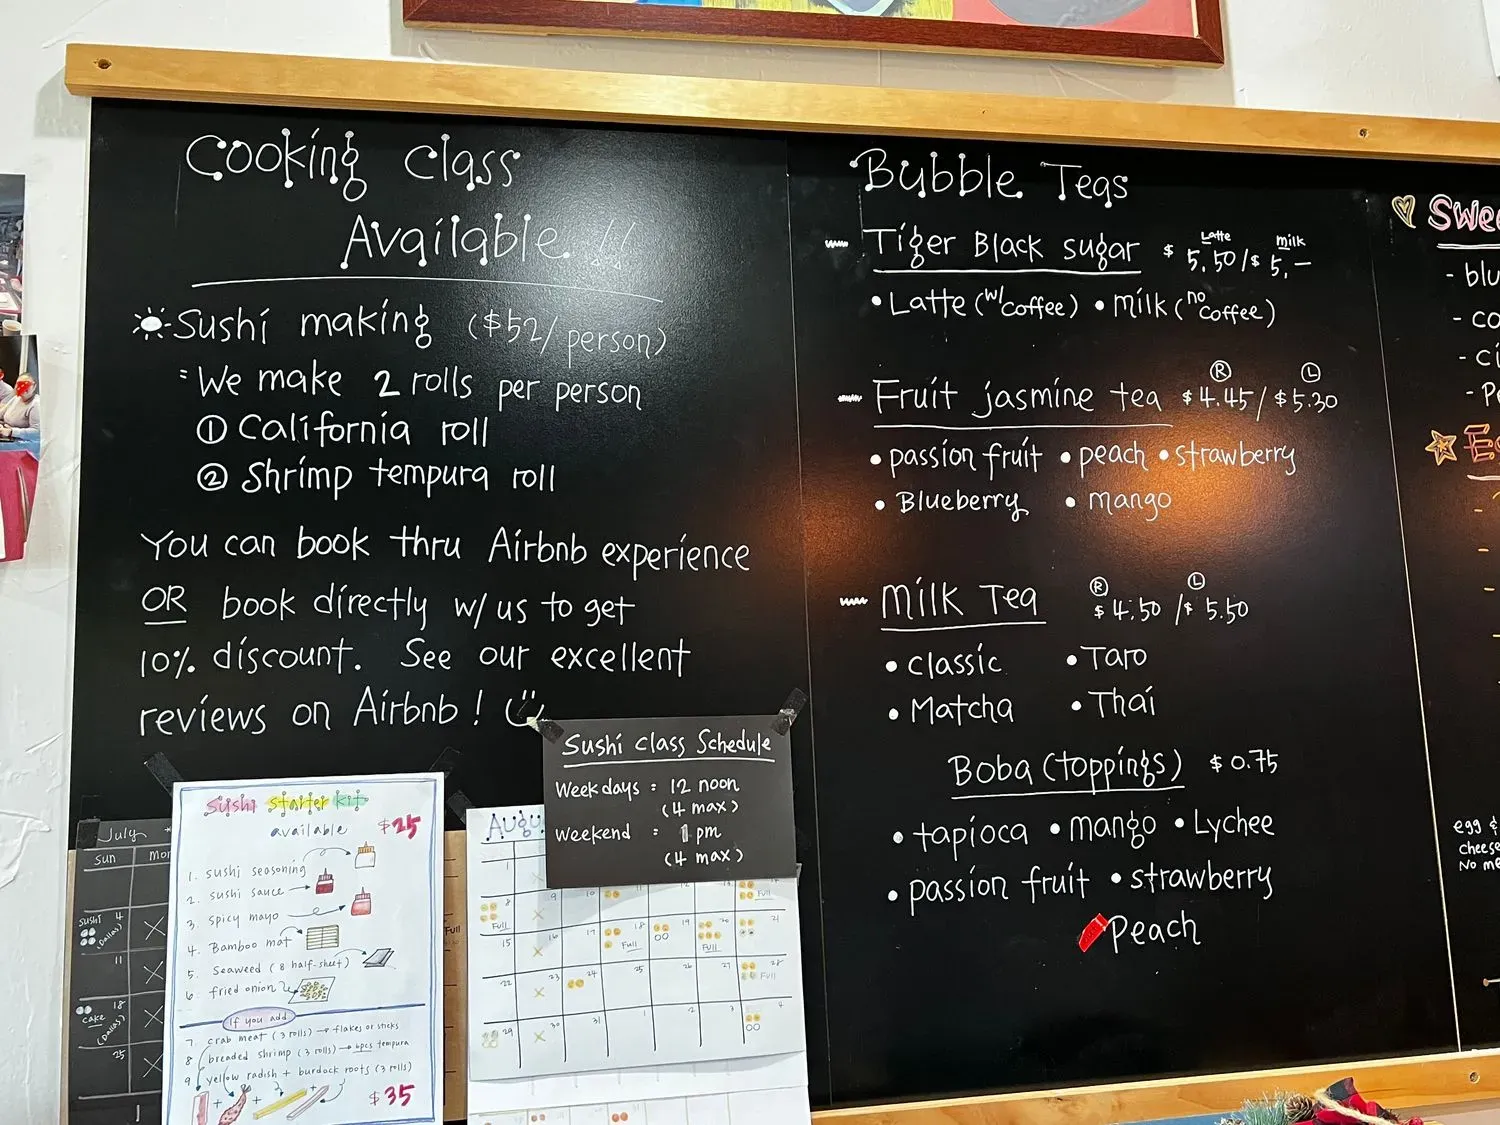 Cooking Class
Available !!
Sushi making ($52/person)
We make 2 rolls per person
① California roll
② Shrimp tempura roll
You can book thru Airbnb experience
OR book directly w/ us to get
10% discount. See our excellent
reviews on Airbnb!
Sushi Class Schedule
Weekdays : 12 noon
(4 max)
Weekend : 1 pm
(4 max)
Sushi starter kit
available $25
1. sushi seasoning
2. sushi sauce
3. spicy mayo
4. Bamboo mat
5. Seaweed (8 half-sheet)
6. fried onion
If you add
7 crab meat (3 rolls) → flakes or sticks
8 breaded shrimp (3 rolls) → 6pcs tempura
9 yellow radish + burdock roots (3 rolls)
$35
July
Sun Mon
Sushi 4
(Dallas)
11
18
cake
(Dallas)
25
Augu
1
8 9 10 Full
Full
15 16 17 18 19 20 21
Full Full
22 23 24 25 26 27 28
Full
29 30 31 1 2 3 4
Bubble Teas
Tiger Black sugar $ 5.50/$ 5.—
Latte milk
• Latte (w/ coffee) • milk (no coffee)
Fruit jasmine tea $4.45/$5.30
Ⓡ Ⓛ
• passion fruit • peach • strawberry
• Blueberry • mango
Milk Tea $4.50/$5.50
Ⓡ Ⓛ
• classic • Taro
• Matcha • Thai
Boba (toppings) $0.75
• tapioca • mango • Lychee
• passion fruit • strawberry
Peach
Swee
- blu
- co
- ci
- Pe
egg &
cheese
No me